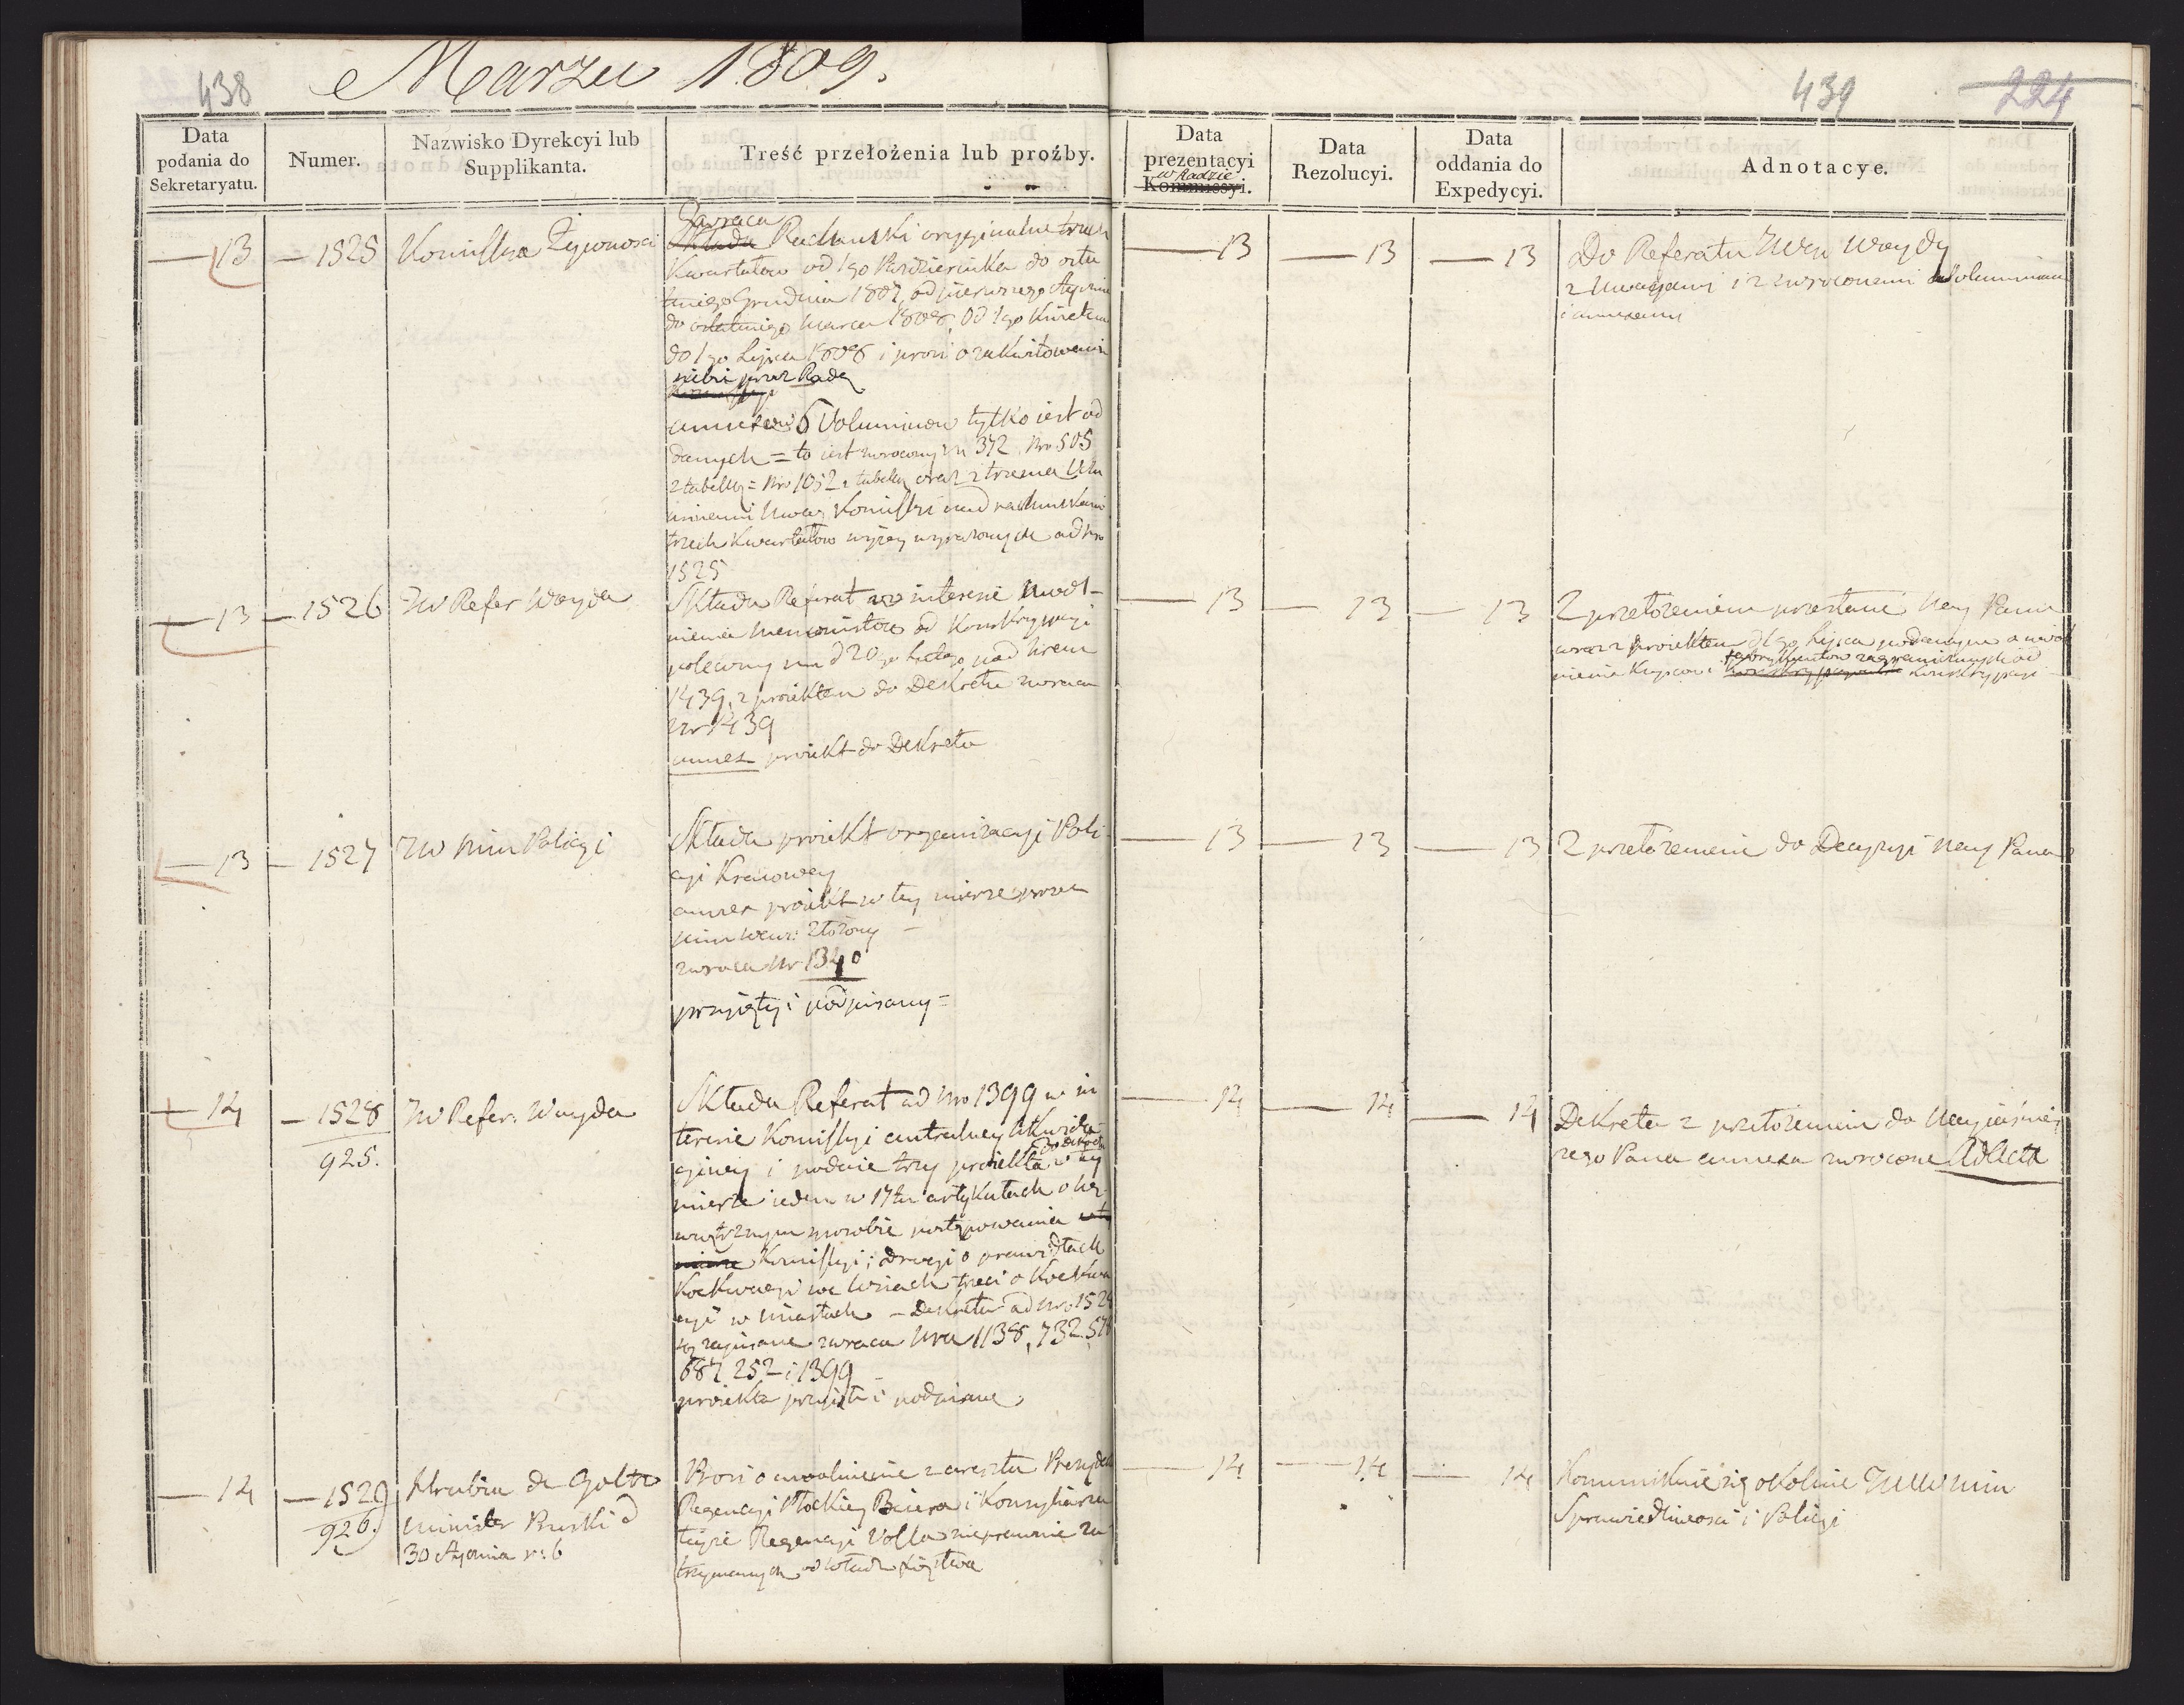 438
Marzec 1809.
439
224
Data podania do Sekretaryatu.
Numer.
Nazwisko Dyrekcyi lub Supplikanta.
Treść przełożenia lub proźby.
Data prezentacyi w Radzie Kommissyi.
Data Rezolucyi.
Data oddania do Expedycyi.
Adnotacye.
— 13 — 1525 Komissya Żywności
Zwraca
Składa Rachunki oryginalne trzech
Kwartałow od 1go Pazdziernika do osta
tniego Grudnia 1807, od pierwszego stycznia
do ostatniego Marca 1808, Od 1go Kwietnia
do 1go Lipca 1808 i prosi o zakwitowanie
siebie przez Radę
annexow 6 Voluminow tylko iest od
danych = to iest zwrocony Nr 372 Nro 505
z tabellą = Nro 1052 z tabellą oraz z trzema
Uwag Komissyi nad rachunkami
trzech Kwartałow wyżey wyrażonych ad Nro
1525
— 13 — 13 — 13
Do Referatu JWgo Woydy
z Uwagami i z zwroconemi Voluminami
i annexami
— 13 — 1526 JW Refer Woyda
Składa Referat w interesie uwol-
nienia Menonistow od Konskrypcyi
polecony mu d 20go Lutego pod Nrem
1439, z proiektem do Dekretu zwraca
Nr 1439
annex proiekt do Dekretu
— 13 — 13 — 13
Z przełożeniem przesłane Nay Panu
wraz z proiektem d 1go Lipca podanym o uwol
nienie Kupcow i fabrykantow zagranicznych od
Konskrypcyi
— 13 — 1527 JW Min Policyi
Składa proiekt organizacyi Poli-
cyi Kraiowey
annex proiekt w tey mierze przez
Min Wewn: złożony —
zwraca Nr 1340
przyięty i podpisany =
— 13 — 13 — 13
Z przełożeniem do Decyzyi Nay Pana
— 14 — 1528 JW Refer: Woyda
925.
Składa Referat ad Nro 1399 w in
teresie Komissyi centralney likwida
cyiney i podaie trzy proiekta do dekretu w tey
mierze ieden w 17tu artykułach o we
wnętrznym sposobie postępowania
Komissyi; drugi o prawidłach
Koekwacyi we Wsiach trzeci o Koekwa
cyi w Miastach — Dekreta ad Nro 1528
są zapisane zwraca Nra 1138, 732, 578
687 252 i 1399
proiekta przyięte i podpisane,
— 14 — 14 — 14
Dekreta z przełożeniem do Nayiaśniey
szego Pana annexa zwrocone Ad Acta
— 14 — 1529 Hrabia de Goltz
926. Minister Pruski d
30 Stycznia r: b
Prosi o uwolnienie z aresztu Prezydenta
Regencyi Płockiey Beiera i Konsyliarza
teyże Regencyi Volla nieprawnie za
trzymanych od Władz Xięstwa
— 14 — 14 — 14
Kommunikuie się okolicznie JWW Min
Sprawiedliwości i Policyi